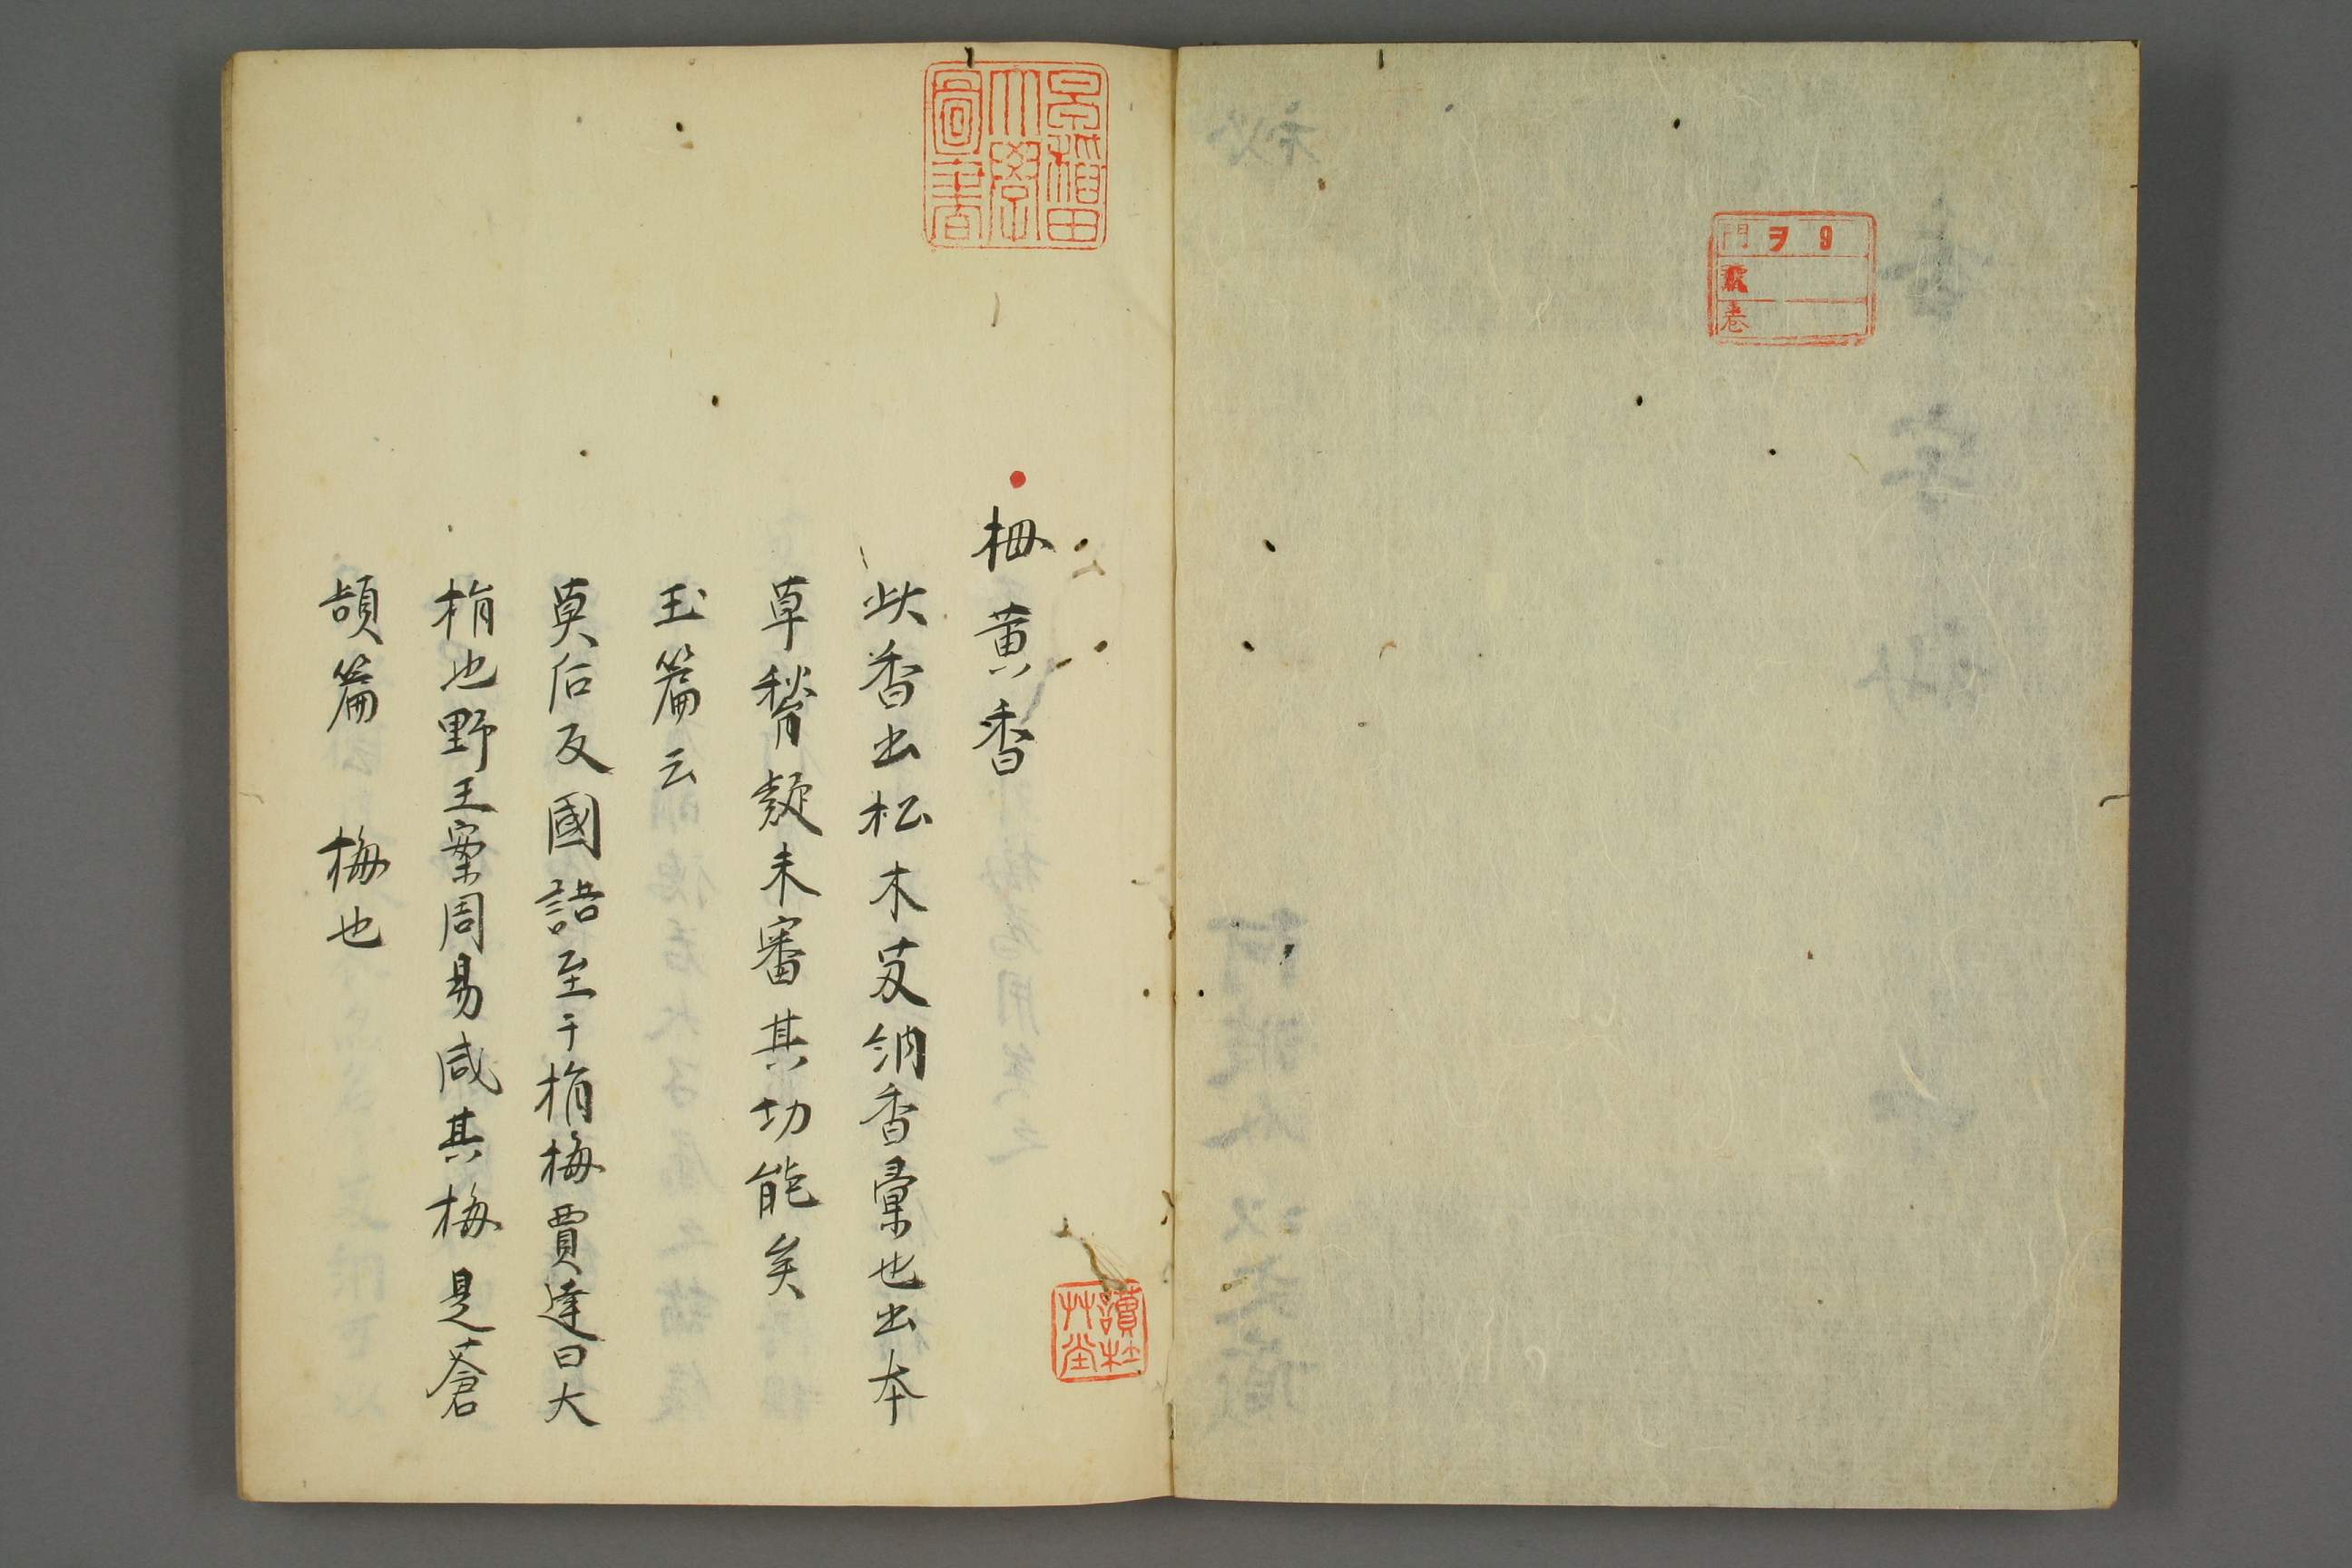 門 ヲ 9
號
卷
早稲田
大學
圖書
栂黄香
此香出松木芨納香彙也出本
草稽疑未審其功能矣
玉篇云
莫后反國語至于梢梅賈逵曰大
梢也野王案周易咸其梅是蒼
頡篇 梅也
讀杜
艸堂